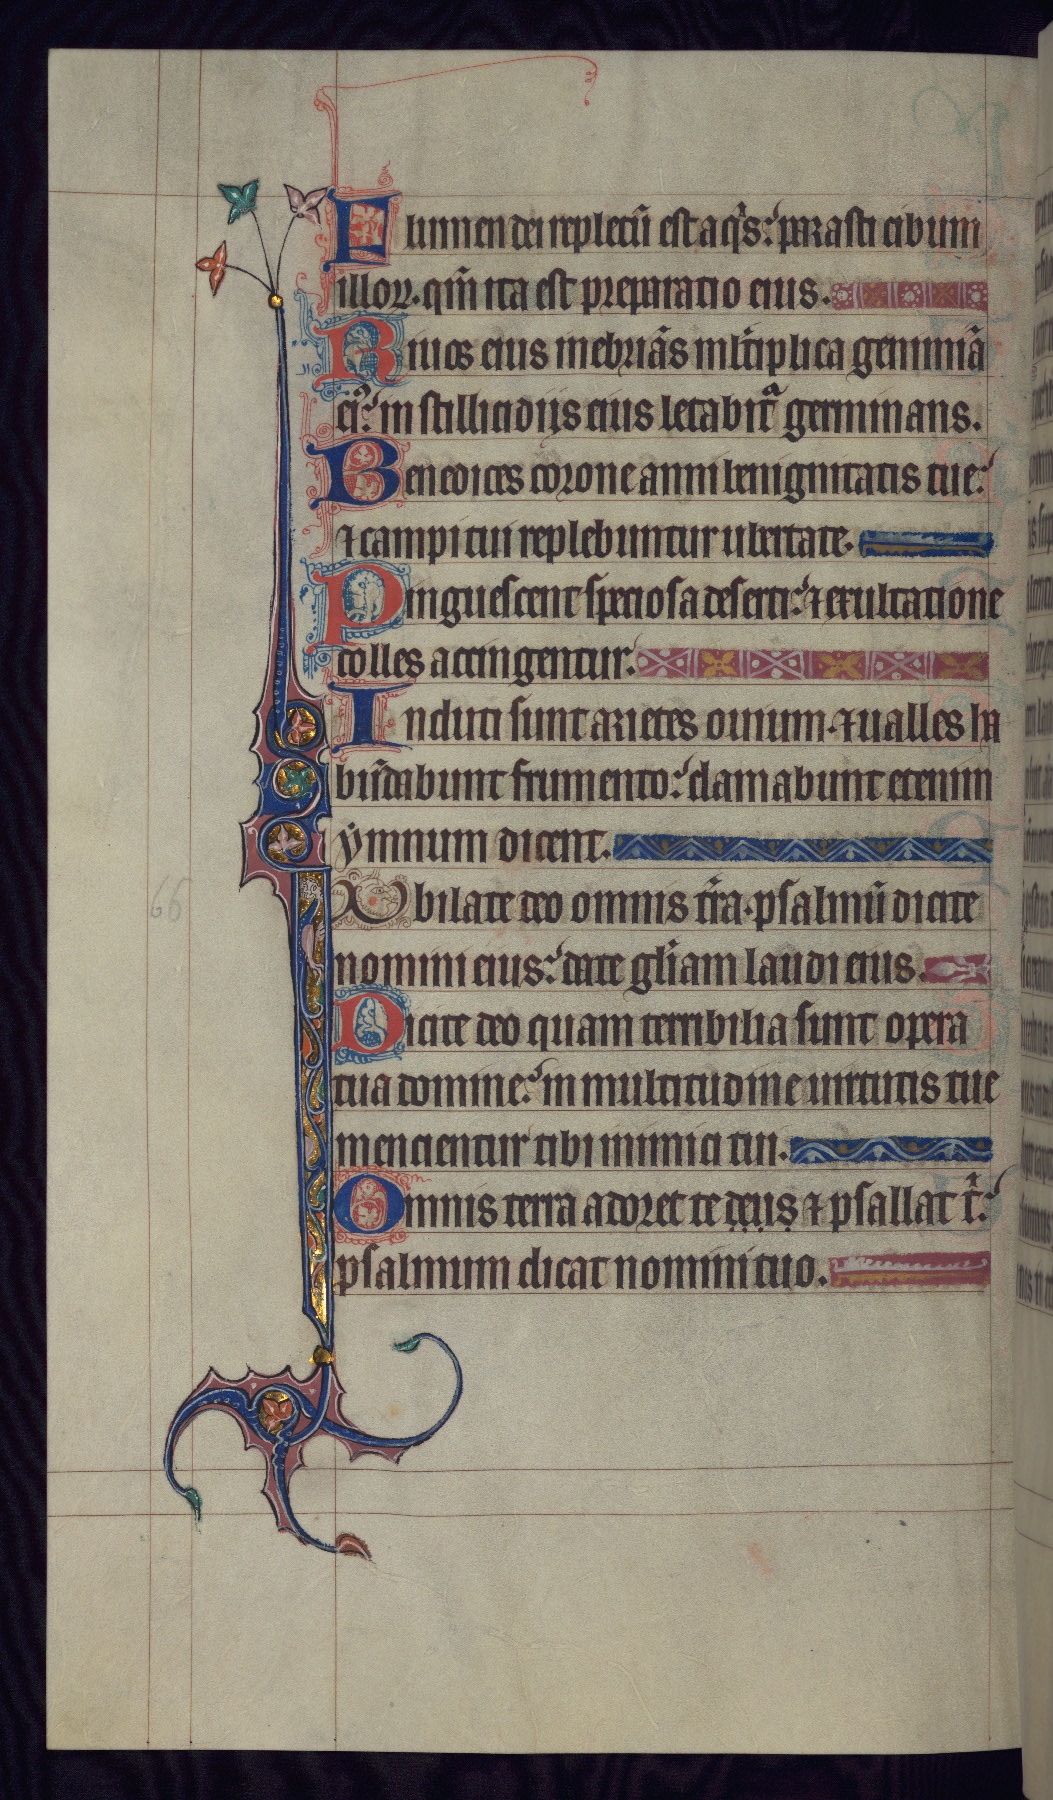 Flumen dei repletū est aqⁱs: parasti cibum
illoꝝ. qm̄ ita est preparatio eius.
Riuos eius inebriās ml̄tiplica geniminā
eiꝰ: in stillicidiis eius letabit᷑ germinans.
Benedices corone anni benignitatis tue:
⁊ campi tui replebuntur ubertate.
Pinguescent speciosa deserti: ⁊ exultatione
colles accingentur.
Induti sunt arietes ouium. ⁊ ualles ha
bn̄dabunt frumento: clamabunt etenim
ymnum dicent.
66
Iubilate deo omnis tr̄a. psalmū dicite
nomini eius: date gl̄iam laudi eius.
Dicite deo quam terribilia sunt opera
tua domine: in multitudine uirtutis tue
mencientur tibi inimici tui.
Omnis terra adoret te deus ⁊ psallat t̄:
psalmum dicat nomini tuo.